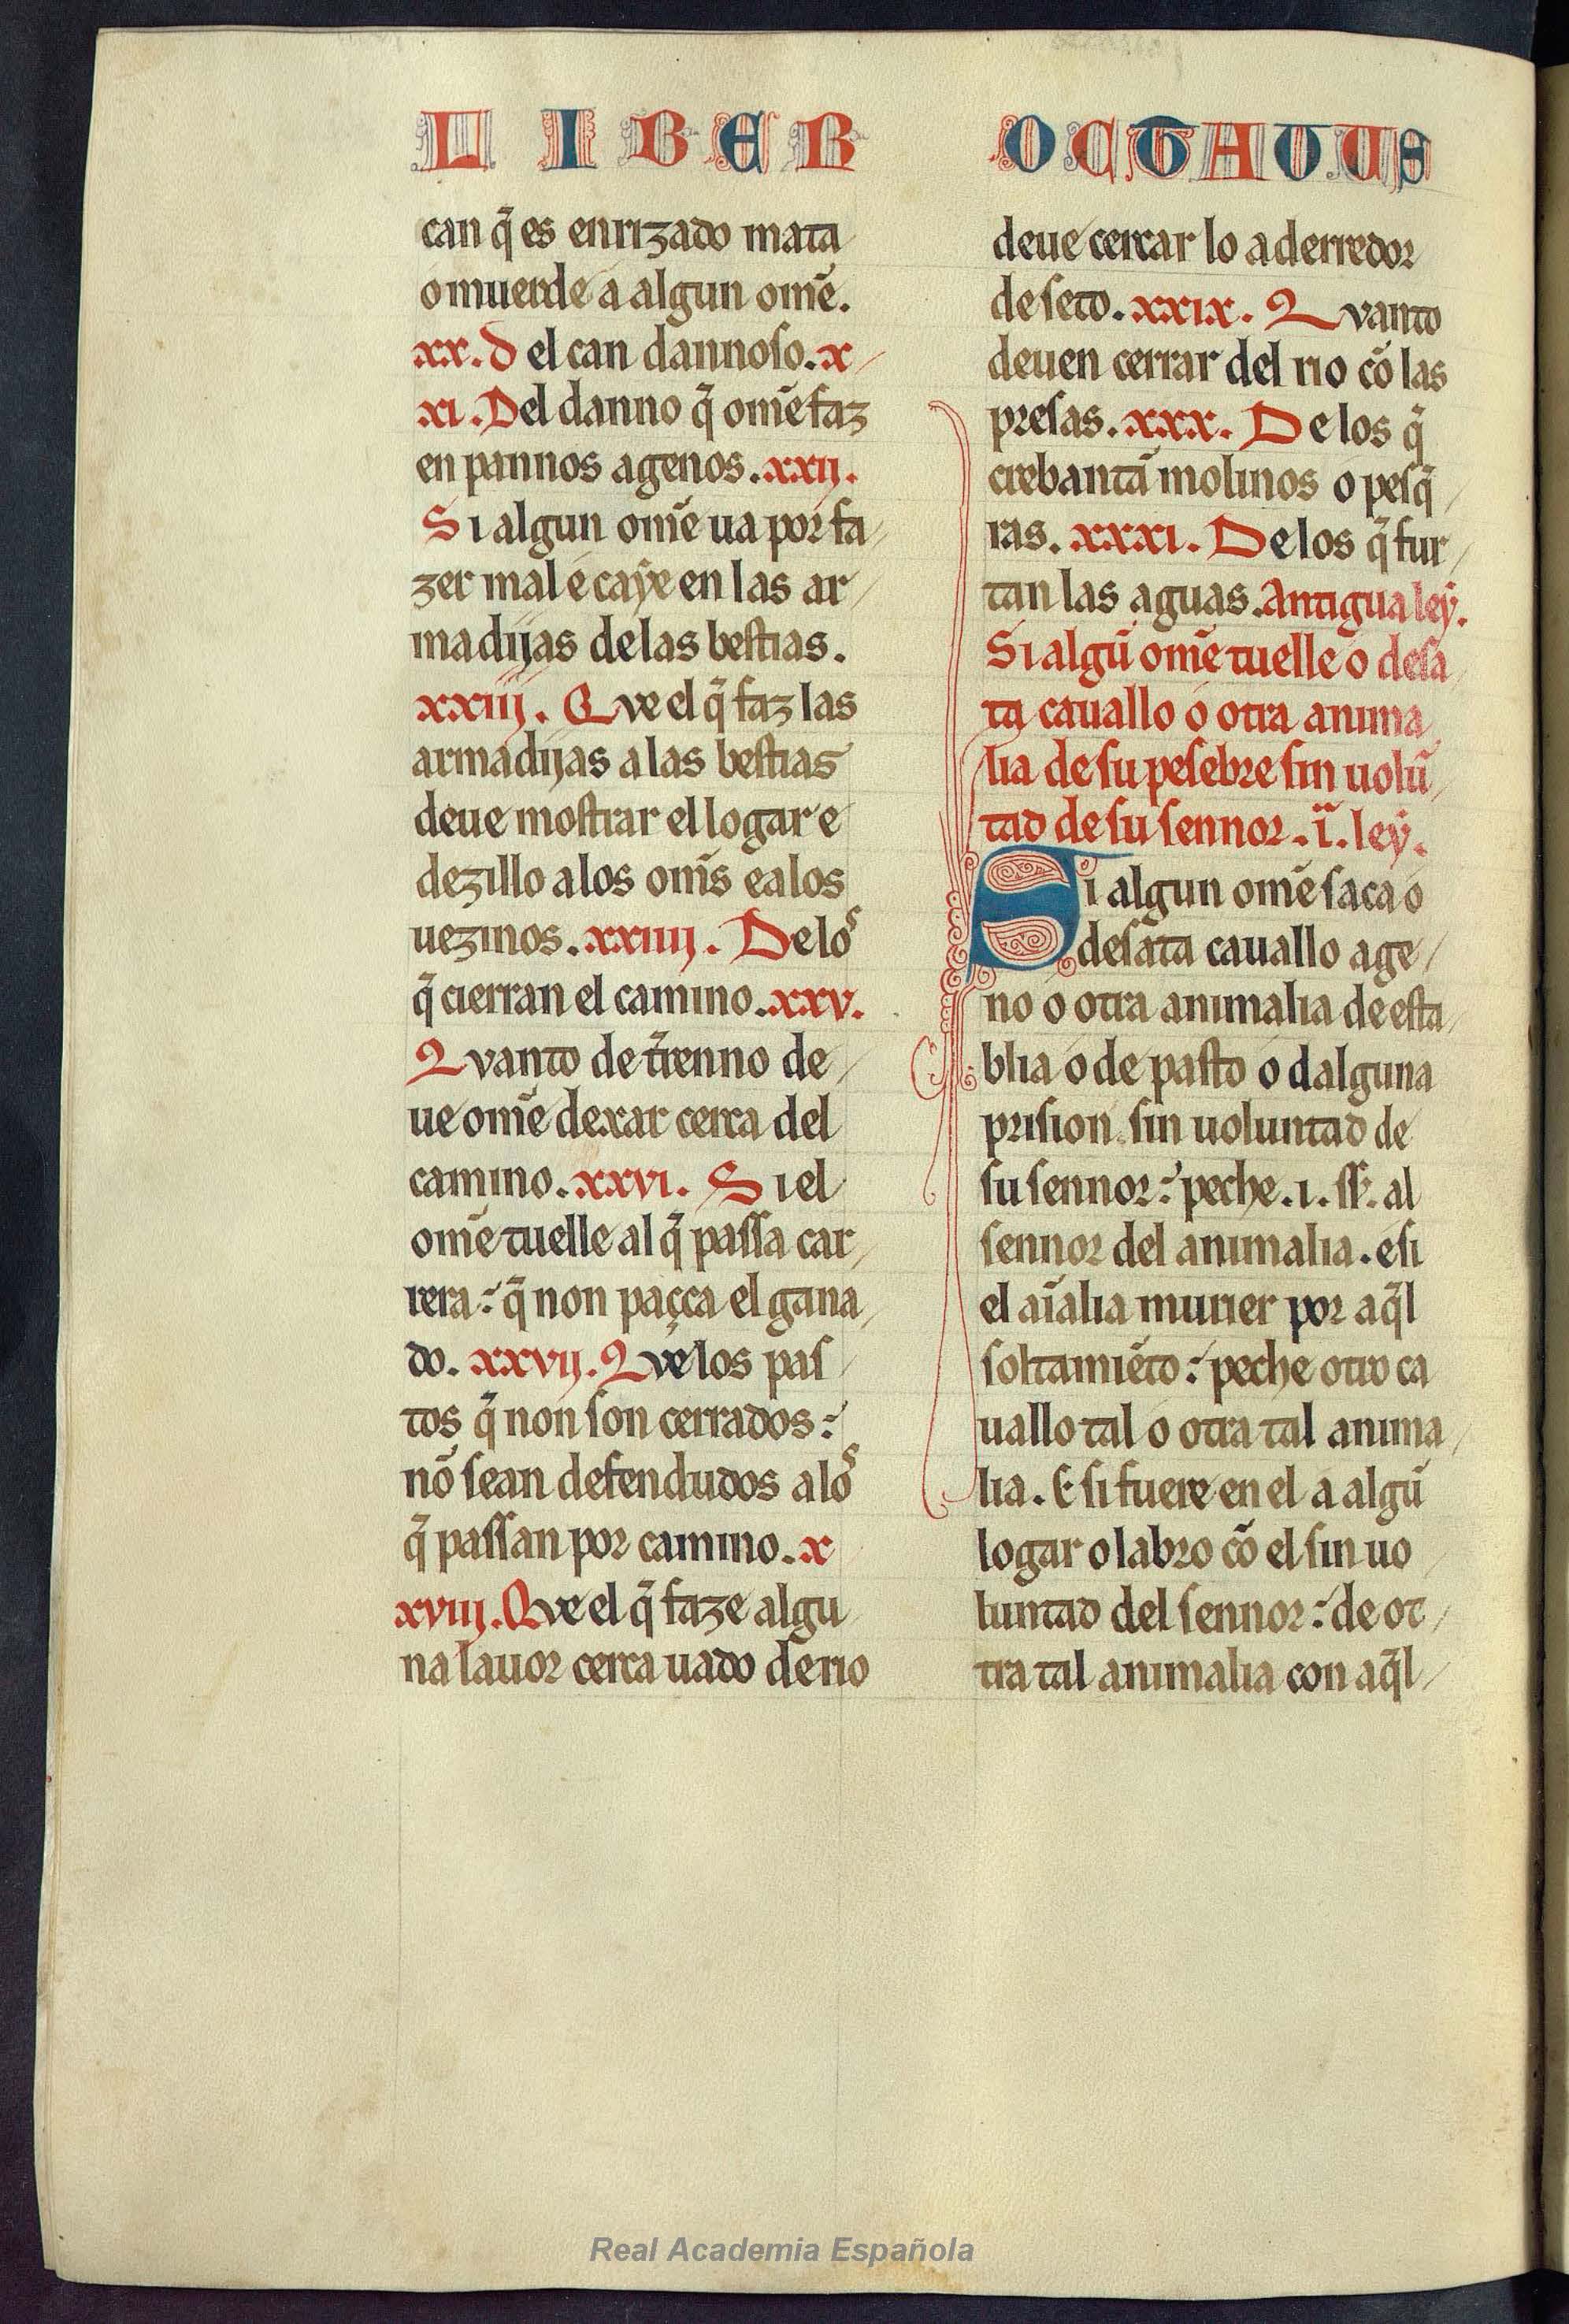 LIBER OCTAUUS
can q̃ es enrizado mata
o muerde a algun om̃e.
xx. Del can dannoso. x
xi. Del danno q̃ om̃e faz
en pannos agenos. xxij.
Si algun om̃e ua por fa
zer mal e caye en las ar
madijas delas bestias.
xxiij. Que el q̃ faz las
armadijas alas bestias
deue mostrar el logar e
dezillo alos om̃s e alos
uezinos. xxiiij. Delos
q̃ cierran el camino. xxv.
Qvanto de t̃renno de
ue om̃e dexar cerca del
camino. xxvi. Si el
om̃e tuelle al q̃ passa car
rera: q̃ non paçca el gana
do. xxvij. Qve los pas
tos q̃ non son cerrados:
nõ sean defendudos alos
q̃ passan por camino. x
xviij. Qve el q̃ faze algu
na lauor cerca uado de rio
deue cercar lo aderredor
de seto. xxix. Qvanto
deuen cerrar del rio cõ las
presas. xxx. De los q̃
crebantã molinos o pesq̃
ras. xxxi. De los q̃ fur
tan las aguas. Antigua ley.
Si algũ om̃e tuelle o desa
ta cauallo o otra anima
lia de su pesebre sin uolũ
tad de su sennor. i.ª ley.
Si algun om̃e saca o
desata cauallo age
no o otra animalia de esta
blia o de pasto o dalguna
prision sin uoluntad de
su sennor: peche .i. sł. al
sennor del animalia. e si
el aĩalia murier por aq̃l
soltamiẽto: peche otro ca
uallo tal o otra tal anima
lia. E si fuere en el a algũ
logar o labro cõ el sin uo
luntad del sennor: de ot
tra tal animalia con aq̃l
Real Academia Española